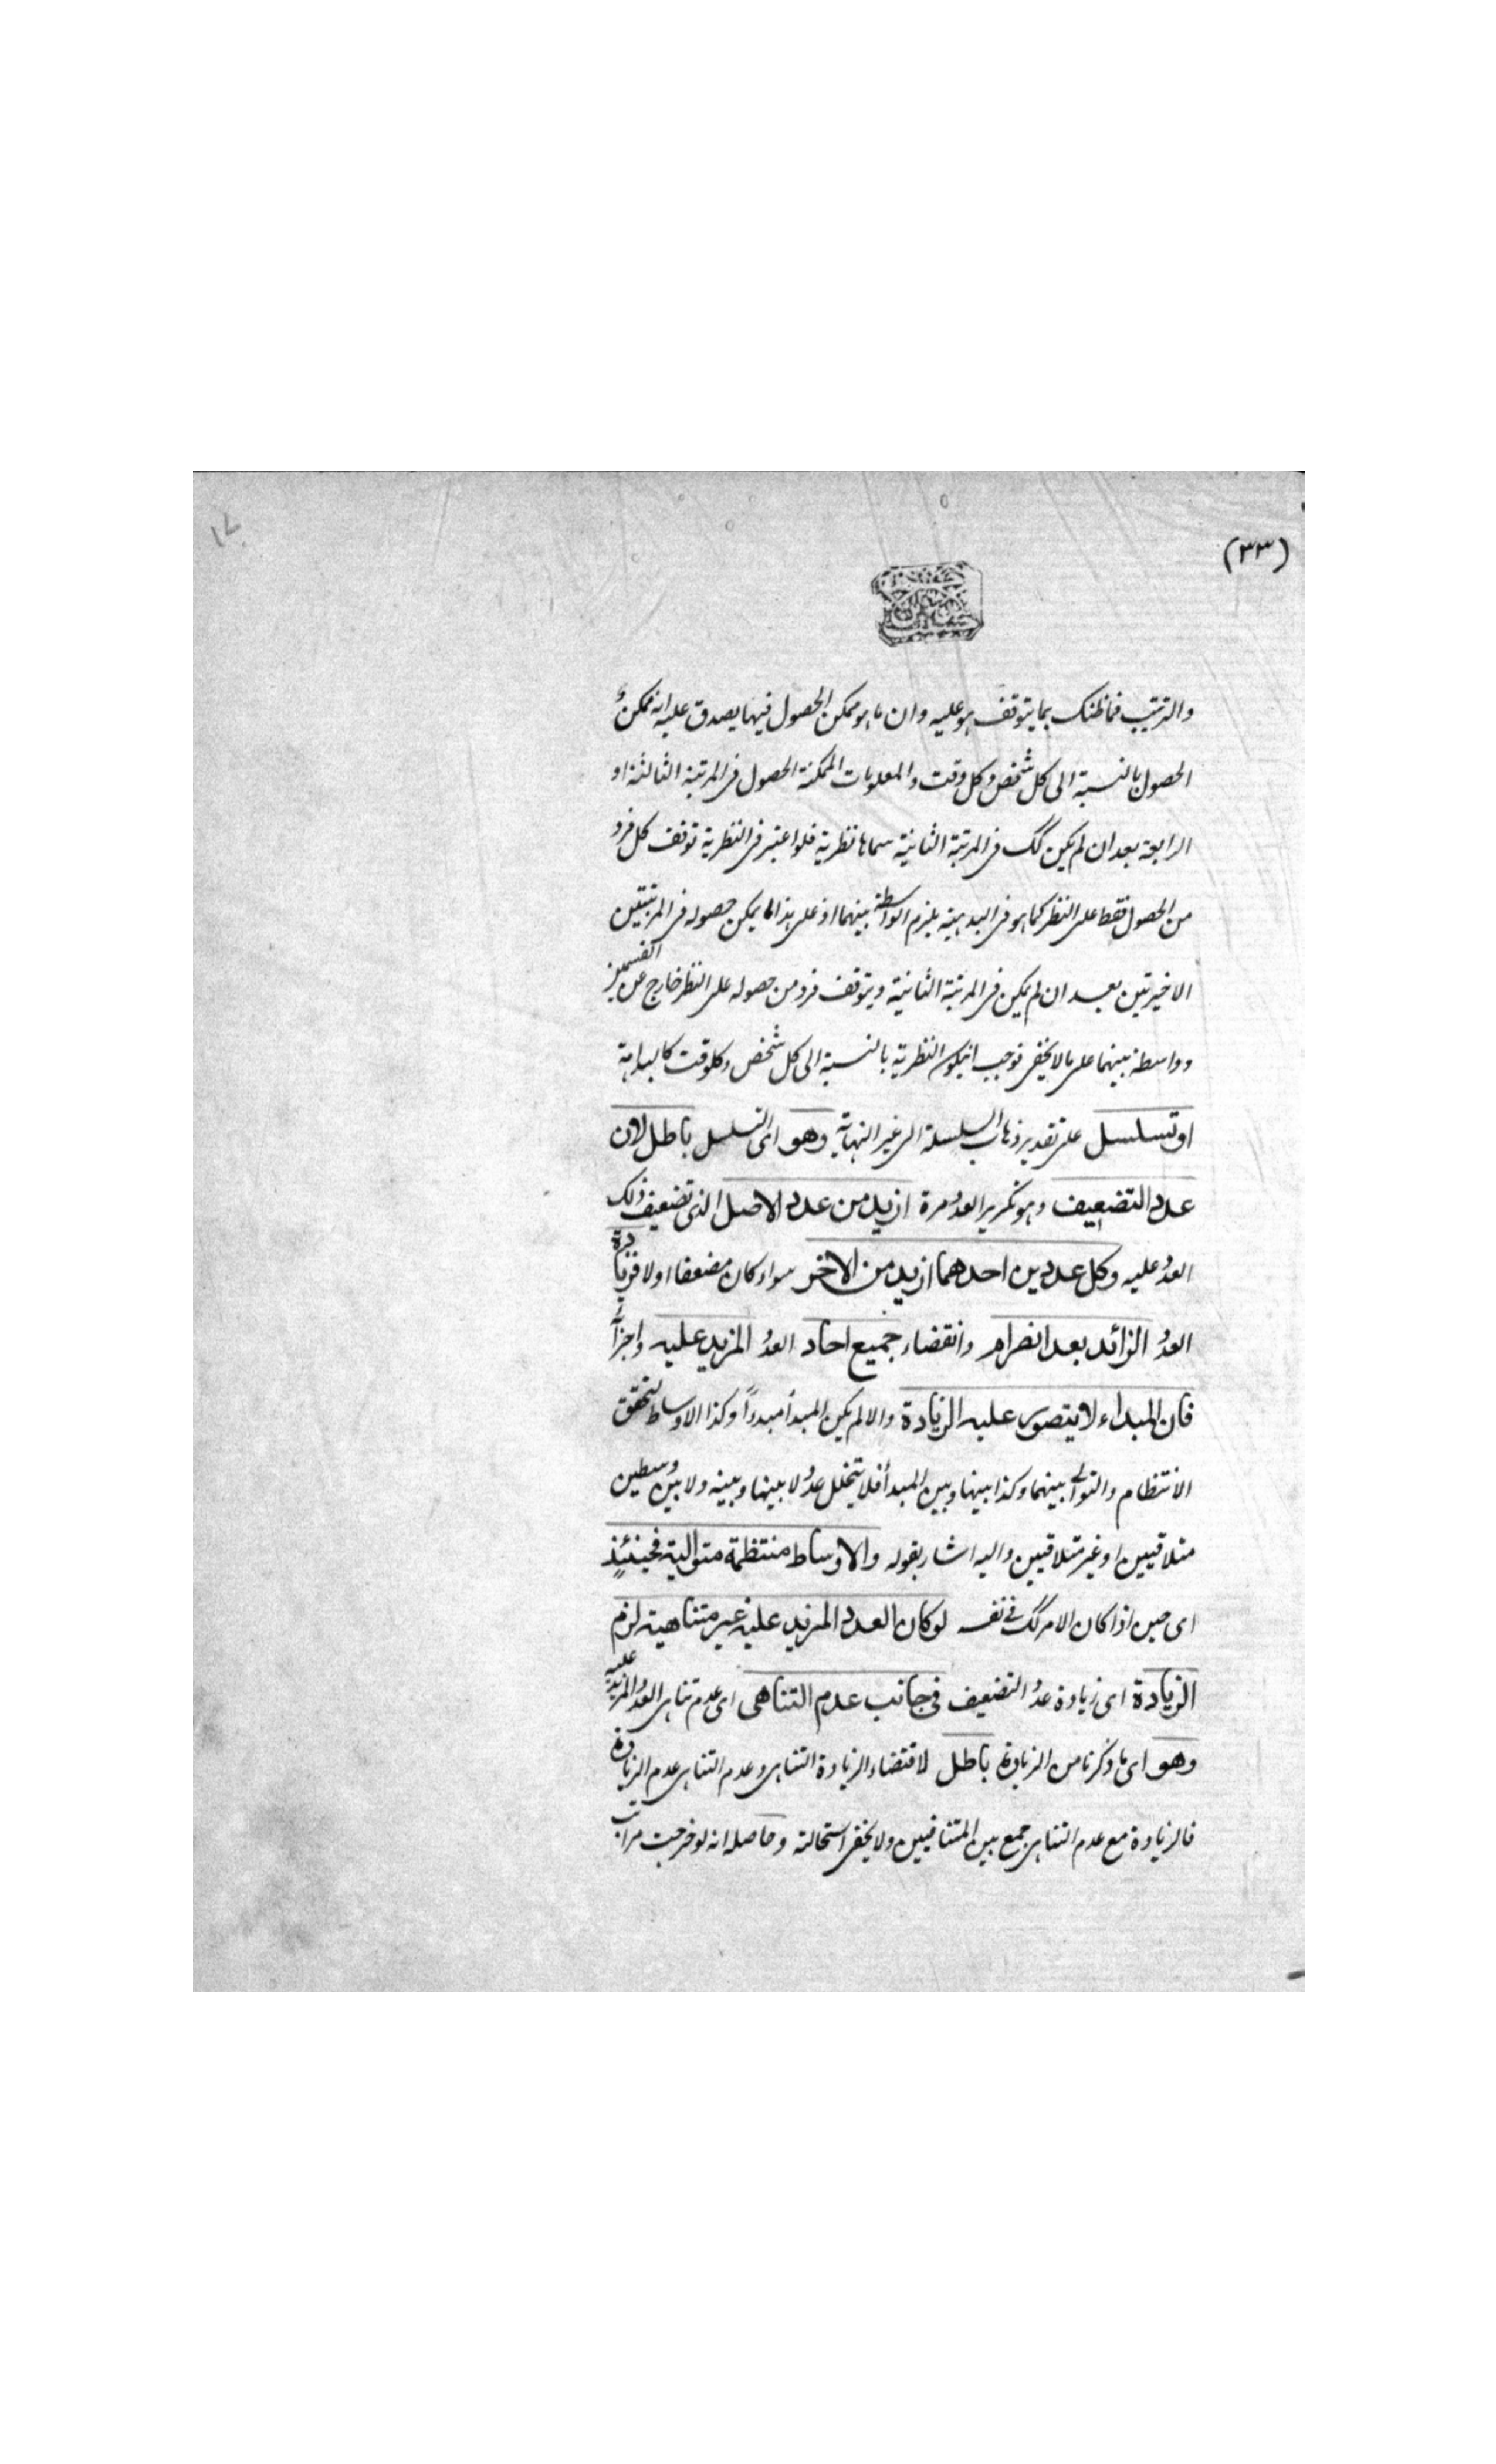 (٣٣)
والترتيب فما ظنك بما يتوقف هو عليه وان ما هو ممكن الحصول فيها يصدق عليه انه ممكن
الحصول بالنسبة الى كل شخص وكل وقت والمعلومات الممكنة الحصول فى المرتبة الثالثة او
الرابعة بعد ان لم يكن كك فى المرتبة الثانية سماها نظرية فلو اعتبر فى النظرية توقف كل فرد
من الحصول فقط على النظر كما هو فى البديهية يلزم الواسطة بينهما اذ على هذا ما يمكن حصوله فى المرتبتين
الاخيرتين بعد ان لم يكن فى المرتبة الثانية ويتوقف فرد من حصوله على النظر خارج عن القسمين
وواسطة بينهما على ما لا يخفى فوجب انيكون النظرية بالنسبة الى كل شخص وكلوقت كالبداهة
او تسلسل على تقدير ذهاب السلسلة الى غير النهاية وهو اى التسلسل باطل لان
عدد التضعيف وهو تكرير العدد مرة ازيد من عدد الاصل الذى تضعيف ذلك
العدد عليه وكل عددين احدهما ازيد من الاخر سواء كان مضعفا اولا فزيادة
العدد الزائد بعد انصرام وانقضاء جميع احاد العدد المزيد عليه واجزائه
فان المبداء لا يتصور عليه الزيادة والا لم يكن المبدأ مبدءاً وكذا الاوساط لتحقق
الانتظام والتوالى بينهما وكذا بينها وبين المبدأ فلا يتخلل عدد لا بينها وبينه ولا بين وسطين
متلاقيين او غير متلاقيين واليه اشار بقوله والاوساط منتظمة متوالية فحينئذٍ
اى حين اذا كان الامر كك فى نفسه لو كان العدد المزيد عليه غير متناهية لزم
الزيادة اى زيادة عدد التضعيف فى جانب عدم التناهى اى عدم تناهى العدد المزيد عليه
وهو اى ما ذكرنا من الزيادة باطل لاقتضاء الزيادة التناهى وعدم التناهى عدم الزيادة
فالزيادة مع عدم التناهى جمع بين المتنافيين ولا يخفى استحالته وحاصله انه لو خرجت مراتب